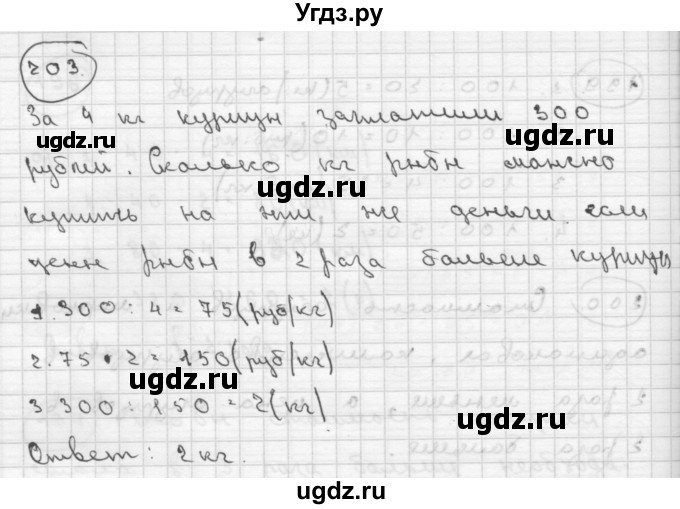 Угдз.ру
203.
За 4 кг курицы заплатили 300
ugdz.ru ugdz.ru
рублей. Сколько кг рыбы можно
ugdz.ru
купить на эти же деньги если
ugdz.ru
цена рыбы в 2 раза больше курицы
1. 300 : 4 = 75 (руб/кг)
ugdz.ru
2. 75 • 2 = 150 (руб/кг)
ugdz.ru
3 300 : 150 = 2 (кг)
ugdz.ru
Ответ: 2 кг.
ugdz.ru